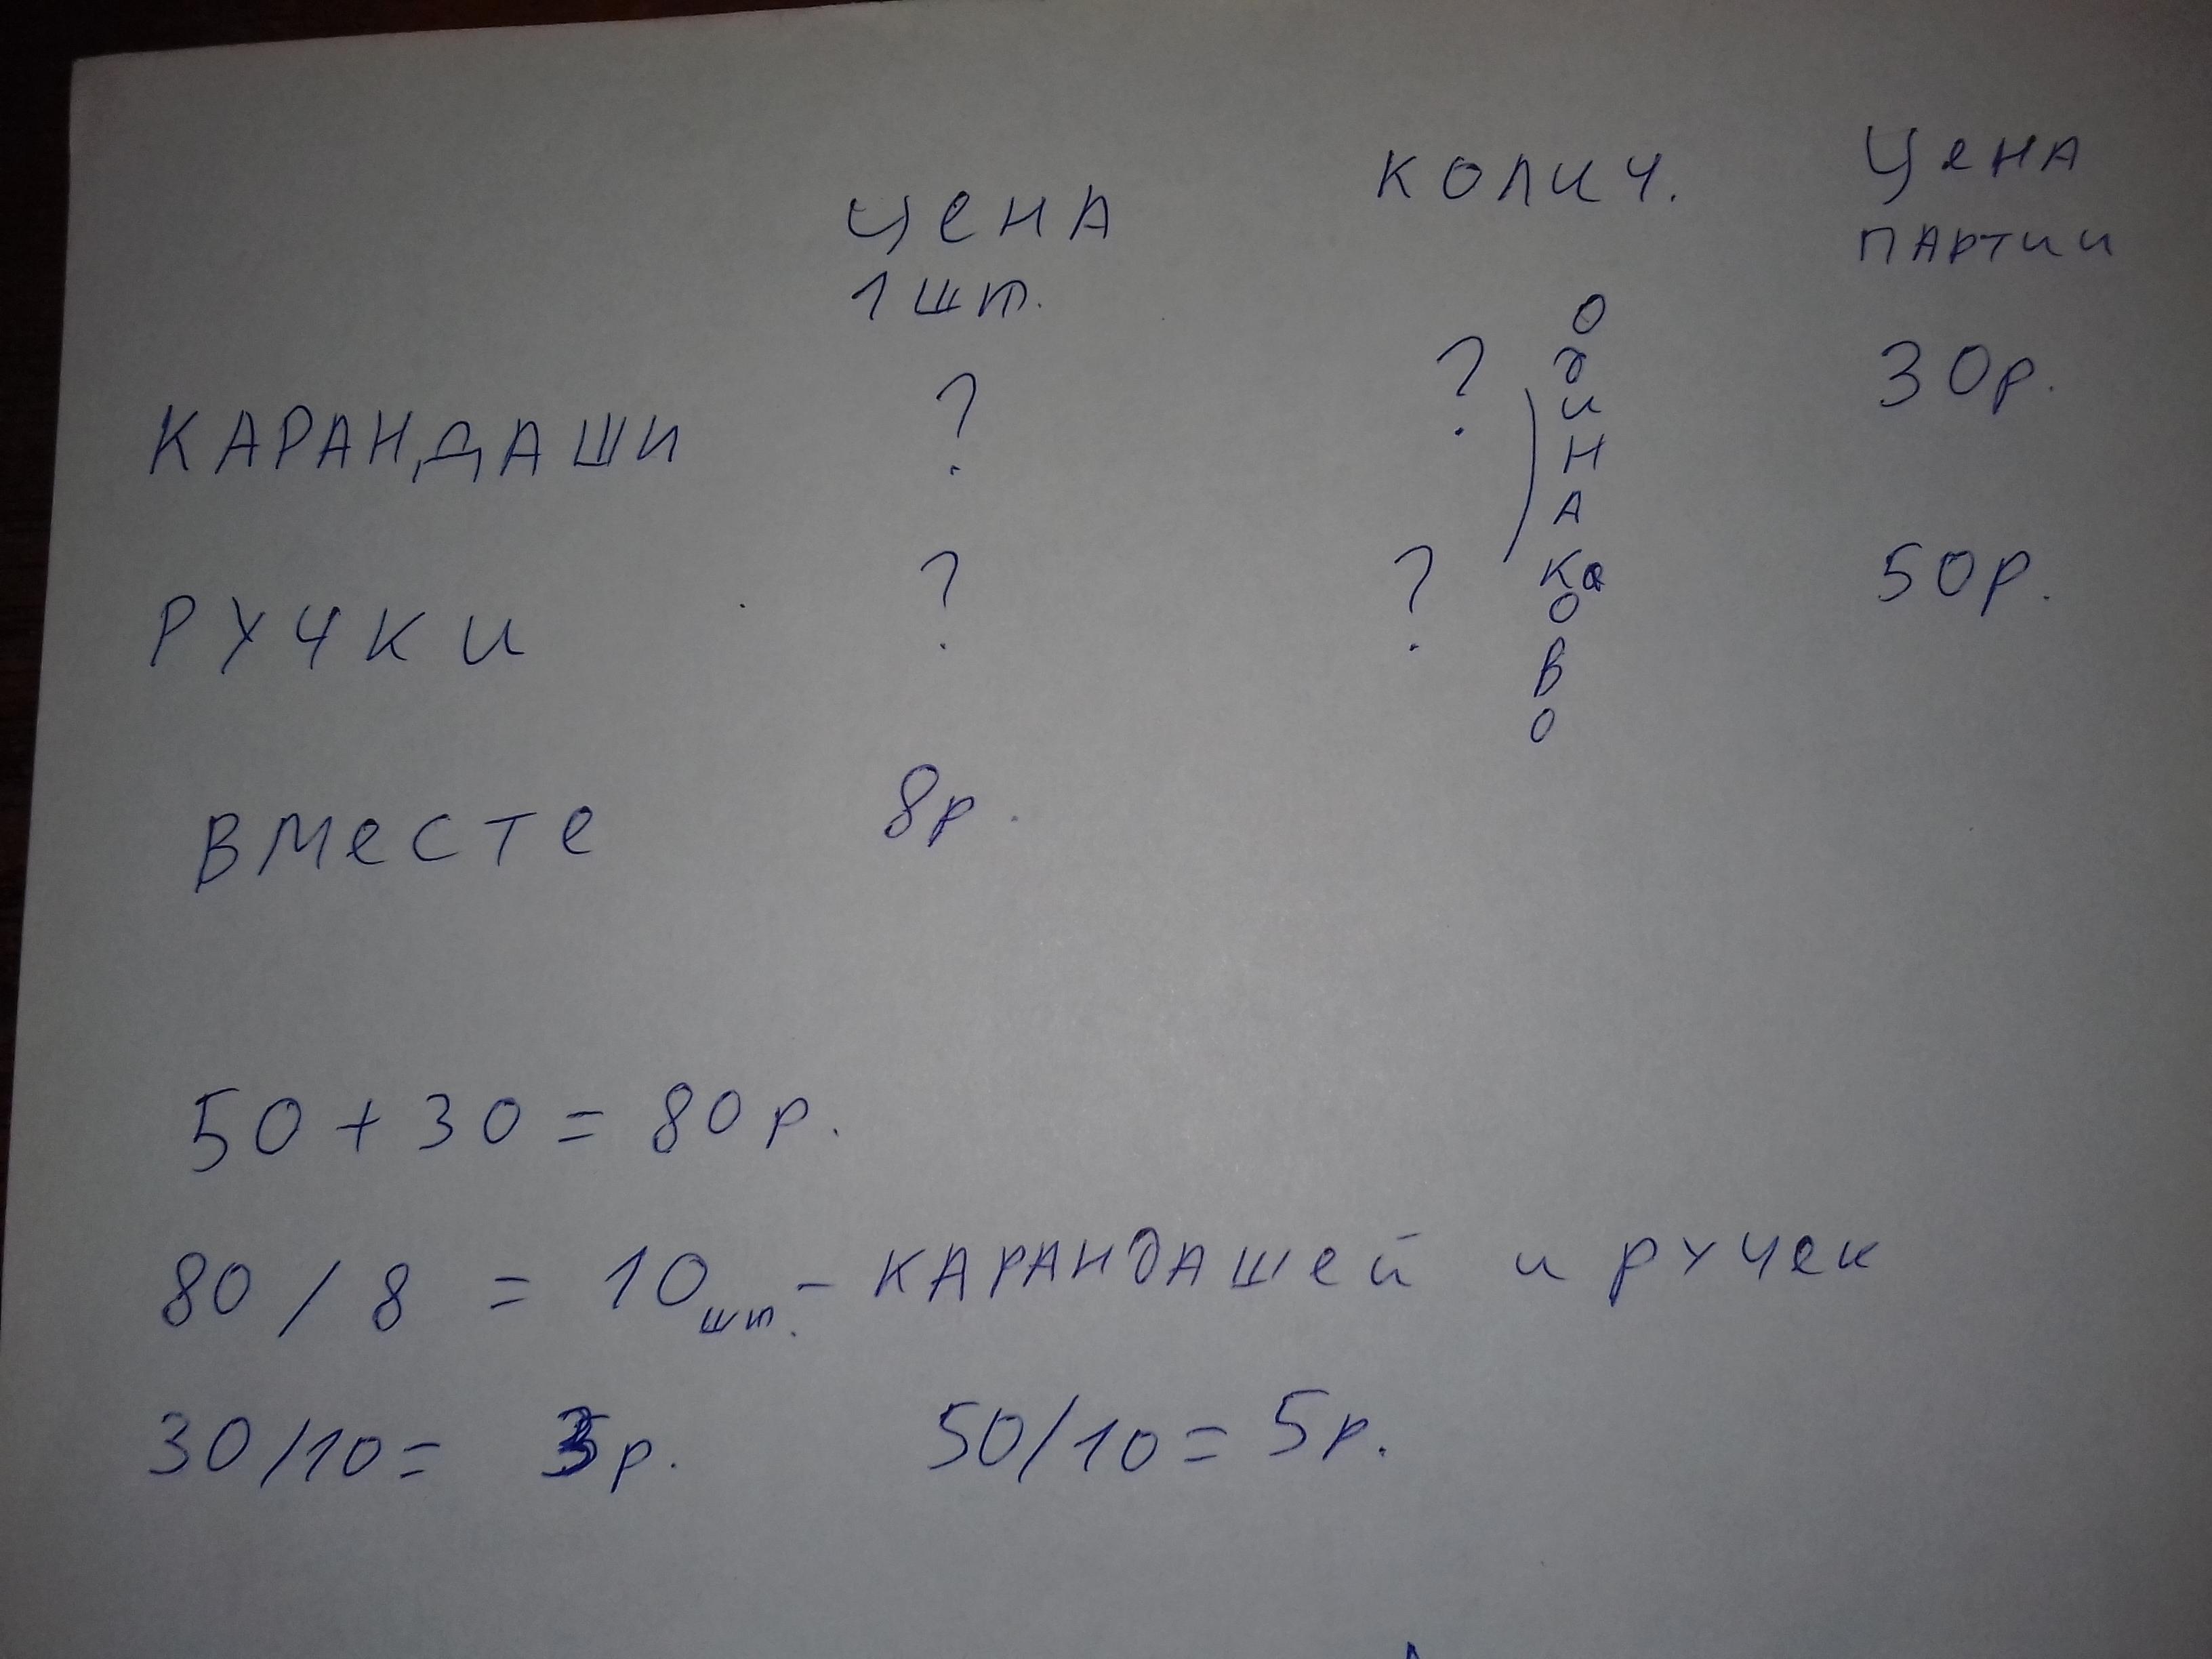 цена колич. Цена
1 шт. партии
КАРАНДАШИ ? ? 30р.
РУЧКИ ? ? 50р.
одинаково
ВМесте 8р.
50 + 30 = 80р.
80 / 8 = 10 шт. - КАРАНДАШей и ручек
30/10 = 3р. 50/10 = 5р.